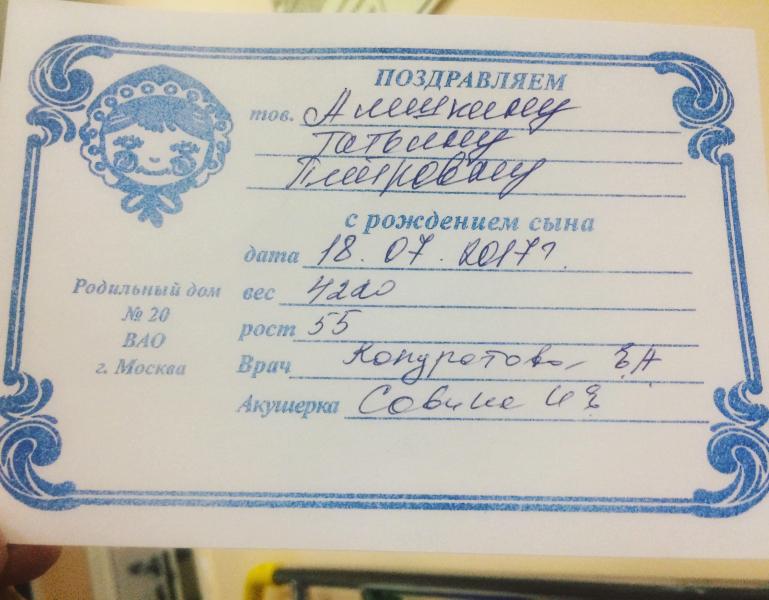 ПОЗДРАВЛЯЕМ
тов. Алишкину
Татьяну
Петровну
с рождением сына
дата 18.07.2017г.
вес 4220
рост 55
Врач Кондратова ЕА
Акушерка Савина И Е
Родильный дом
№ 20
ВАО
г. Москва